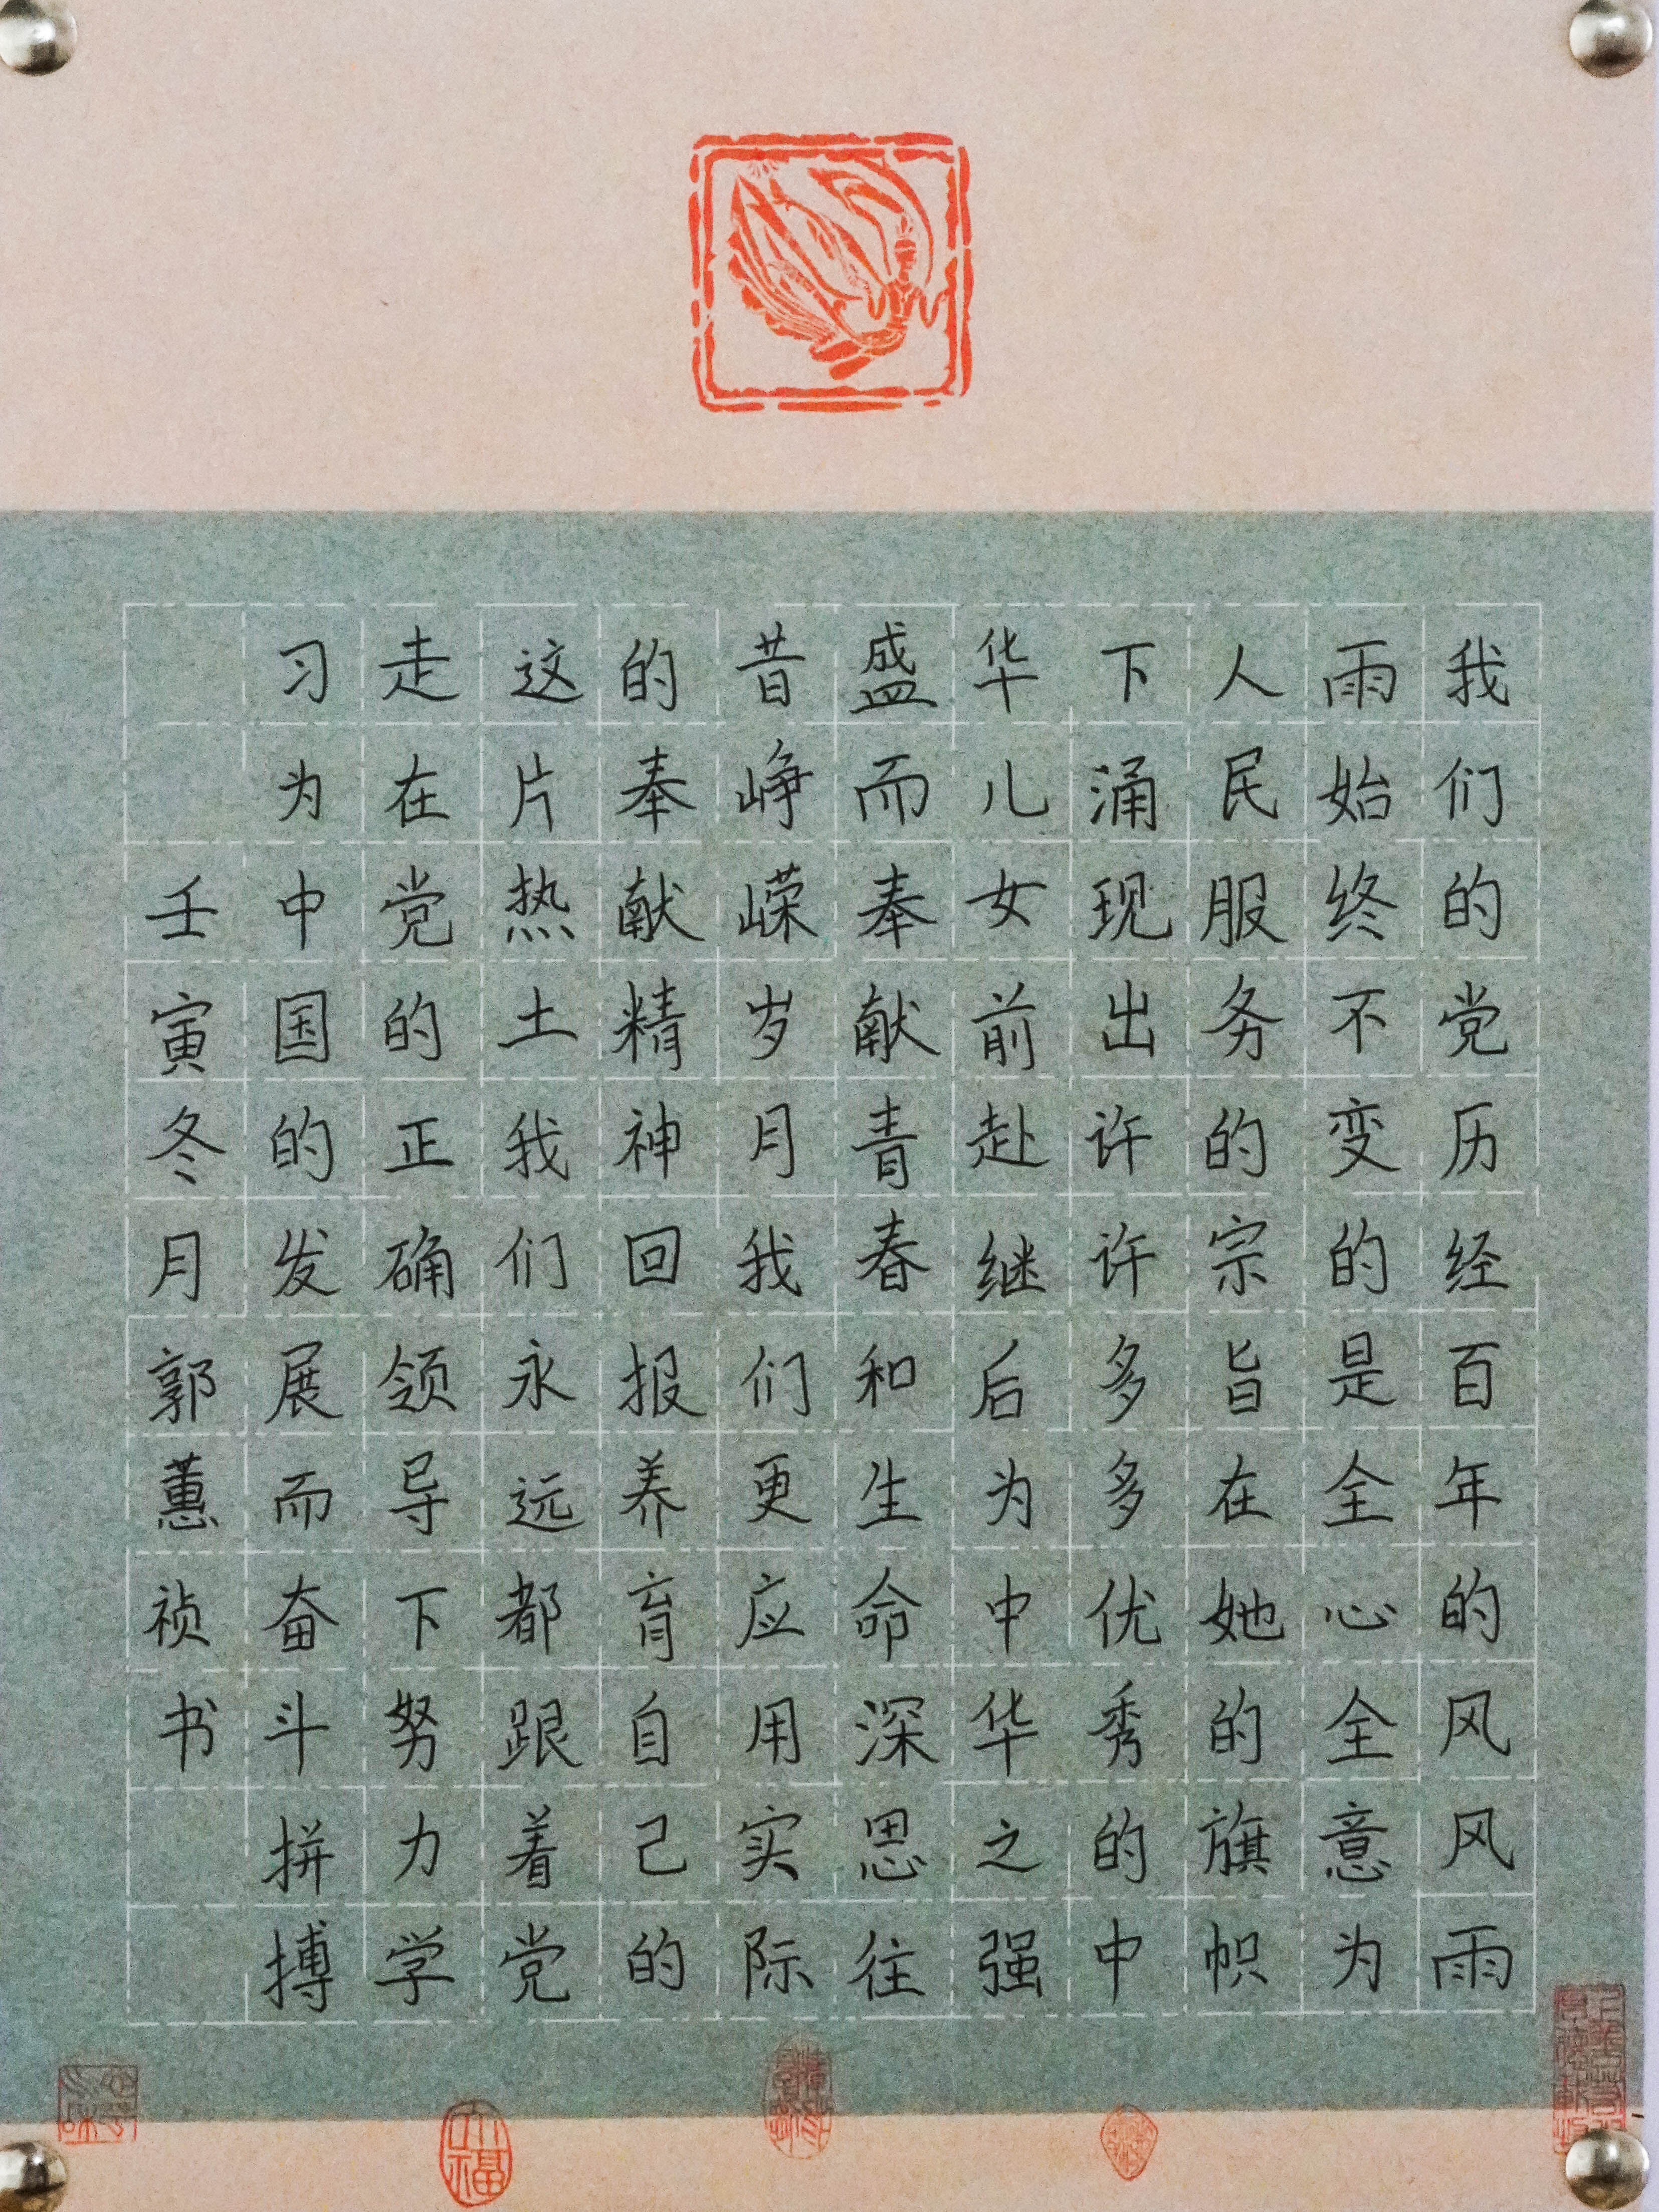 我们的党历经百年的风风雨
雨始终不变的是全心全意为
人民服务的宗旨在她的旗帜
下涌现出许许多多优秀的中
华儿女前赴继后为中华之强
盛而奉献青春和生命深思往
昔峥嵘岁月我们更应用实际
的奉献精神回报养育自己的
这片热土我们永远都跟着党
走在党的正确领导下努力学
习为中国的发展而奋斗拼搏
壬寅冬月郭蕙祯书
大福